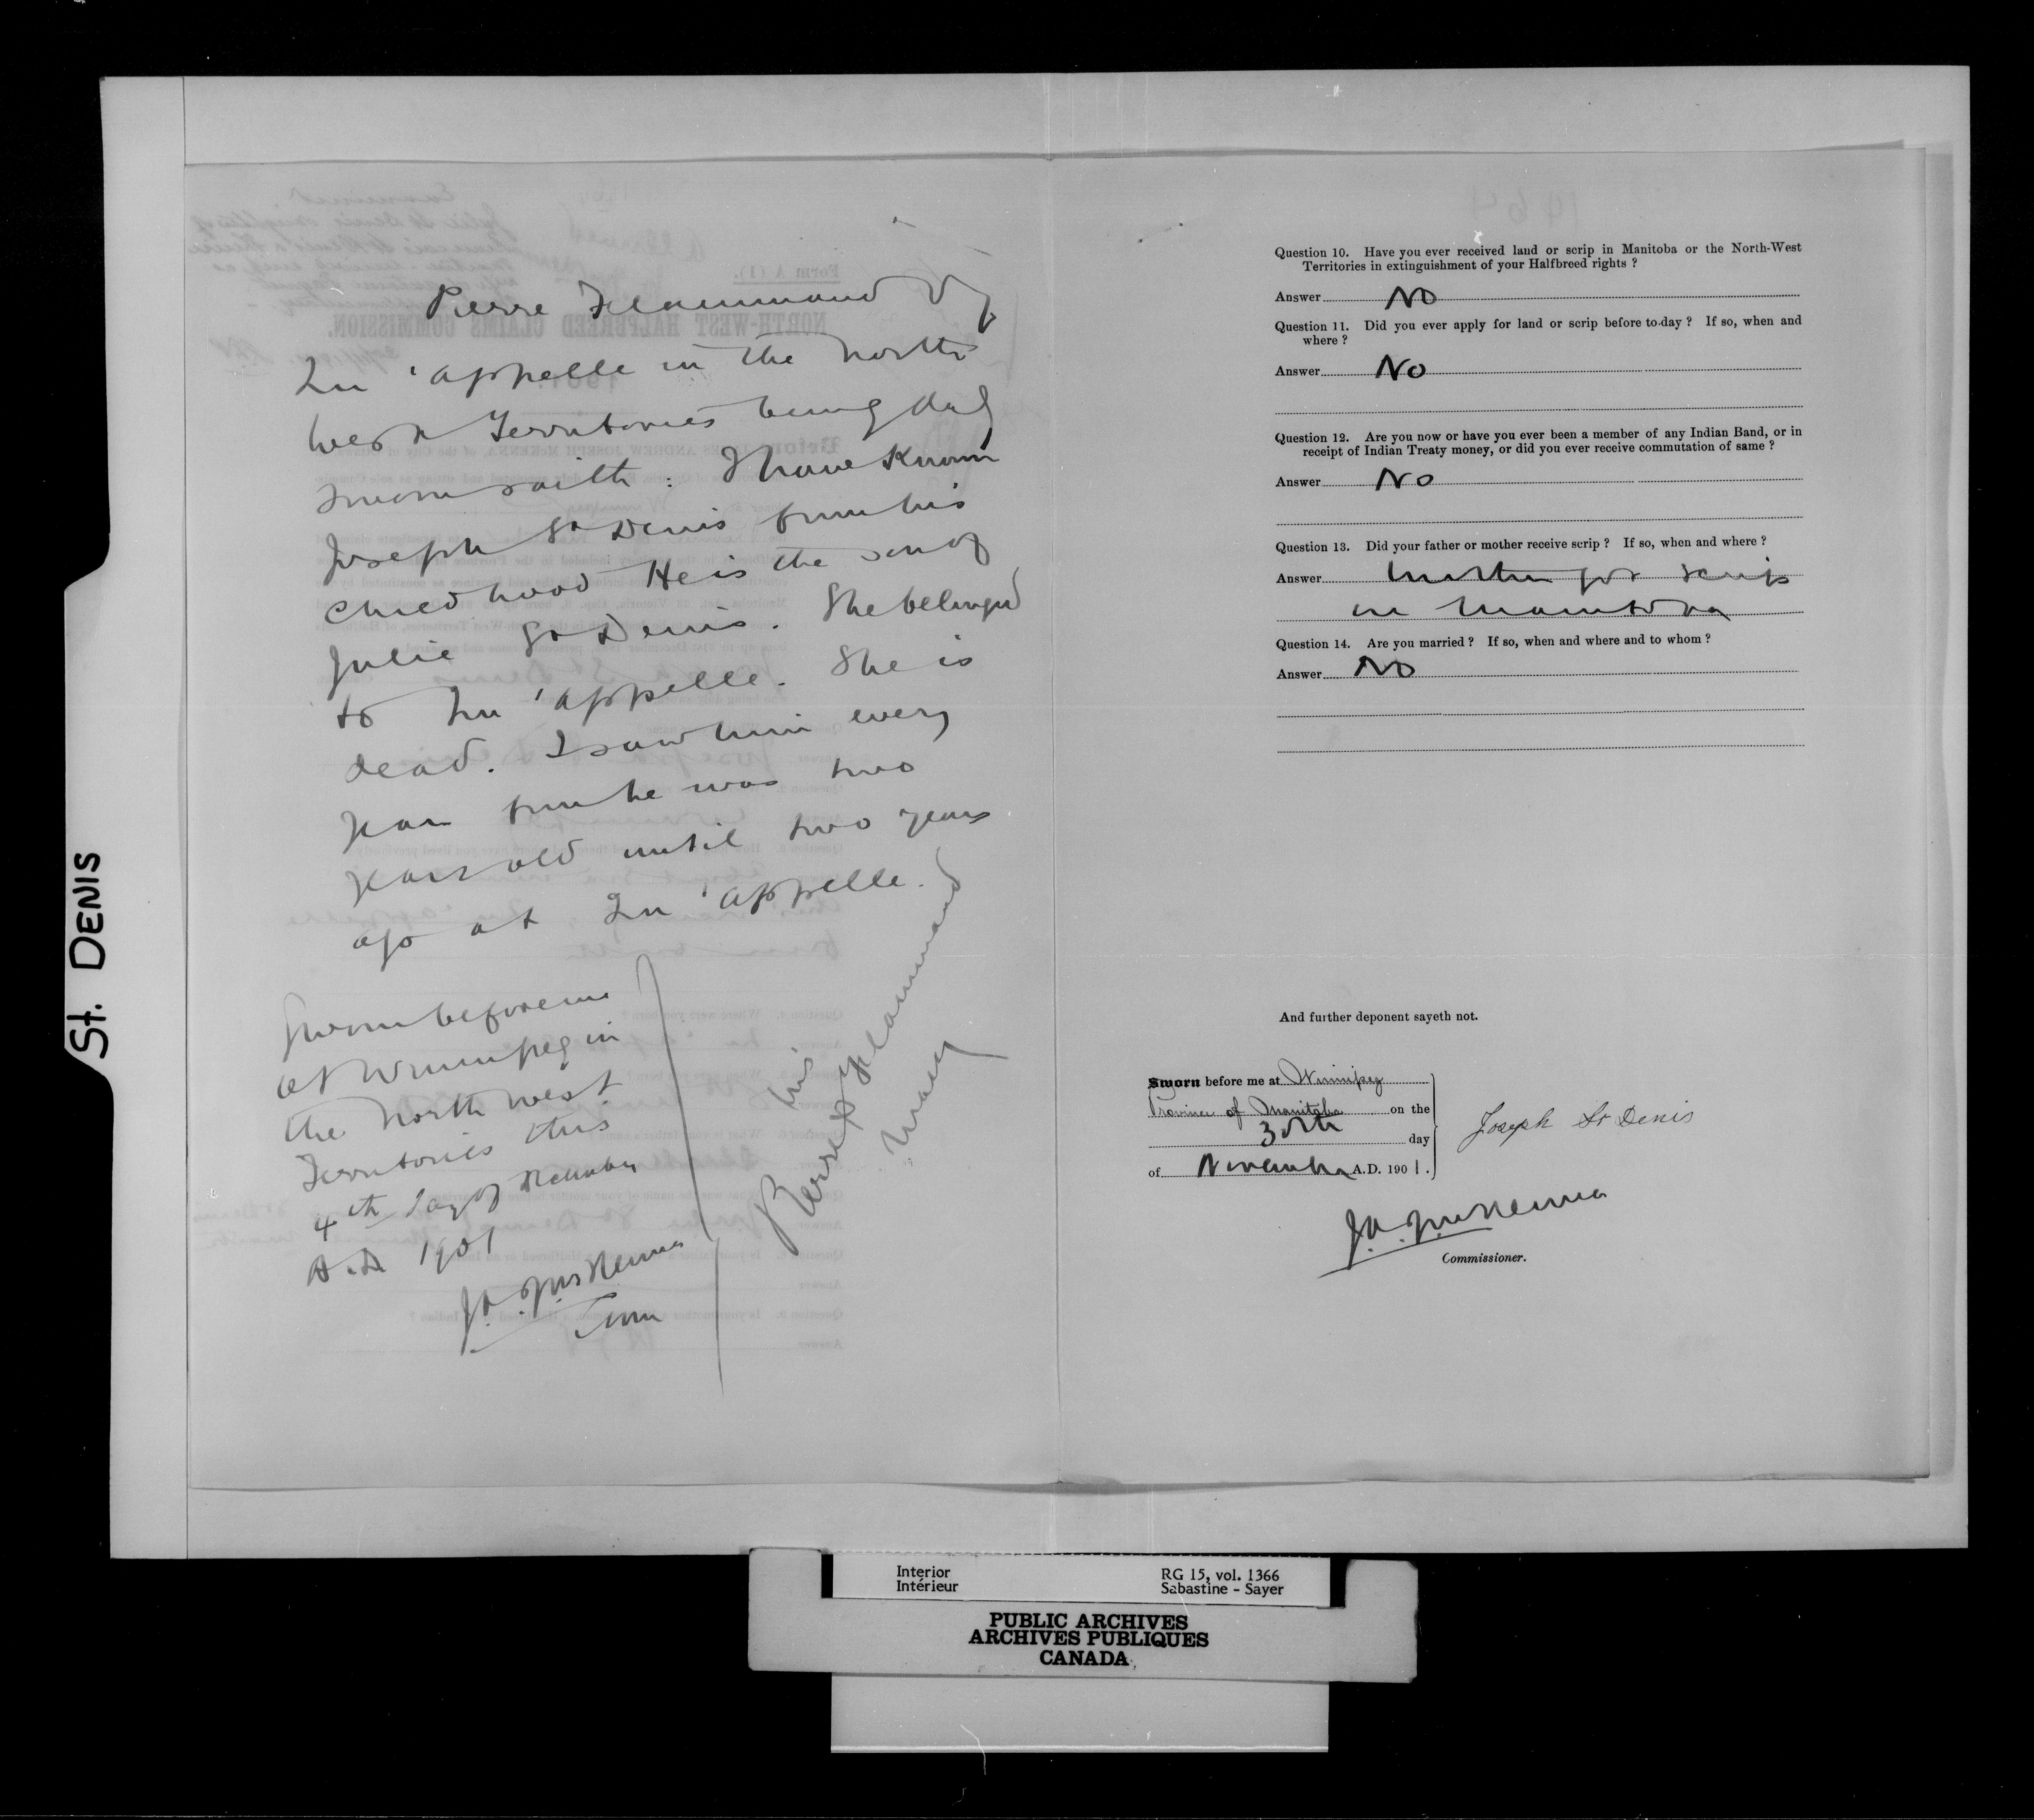 St. DENIS
Pierre Flammand of
Qu'appelle in the North
West Territories being duly
sworn saith: I have known
Joseph St Denis from his
childhood He is the son of
Julie St Denis. She belonged
to Qu'appelle. She is
dead. I saw him every
year from he was two
years old until two years
ago at Qu'appelle.
Sworn before me
at Winnipeg in
the North West
Territories this
4th day of December
A.D. 1901
J.A. McKenna
Comr
his
Pierre X Flammand
mark
Question 10. Have you ever received land or scrip in Manitoba or the North-West
Territories in extinguishment of your Halfbreed rights ?
Answer No
Question 11. Did you ever apply for land or scrip before to-day ? If so, when and
where ?
Answer No
Question 12. Are you now or have you ever been a member of any Indian Band, or in
receipt of Indian Treaty money, or did you ever receive commutation of same ?
Answer No
Question 13. Did your father or mother receive scrip ? If so, when and where ?
Answer Mother got scrip
in Manitoba
Question 14. Are you married ? If so, when and where and to whom ?
Answer No
And further deponent sayeth not.
Sworn before me at Winnipeg
Province of Manitoba on the
30th day
of November A.D. 1901.
Joseph St Denis
J.A. McKenna
Commissioner.
Interior RG 15, vol. 1366
Intérieur Sabastine - Sayer
PUBLIC ARCHIVES
ARCHIVES PUBLIQUES
CANADA